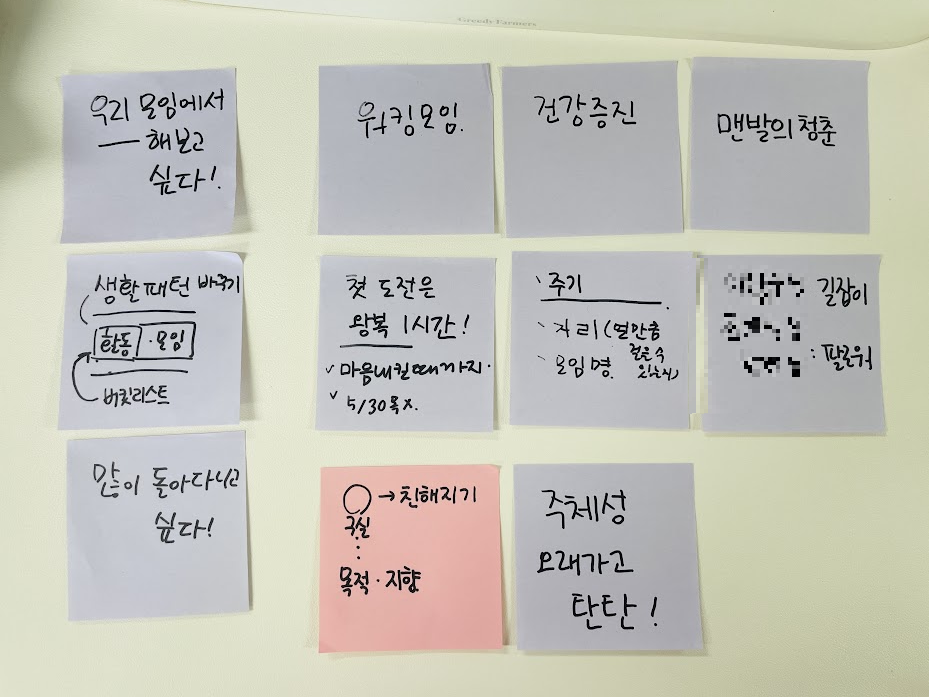 Greedy Farmers
우리 모임에서
— 해보고
싶다!
워킹모임.
건강증진
맨발의 청춘
생활패턴 바꾸기
활동 · 모임
버킷리스트
첫 도전은
왕복 1시간!
✓ 마음내킬때까지·
✓ 5/30 목 X.
· 주기
· 거리 (얼만큼
걸을 수
있는지)
· 모임명.
길잡이
: 팔로워
많이 돌아다니고
싶다!
○ → 친해지기
구실
:
목적 · 지향
주체성
오래가고
탄탄!